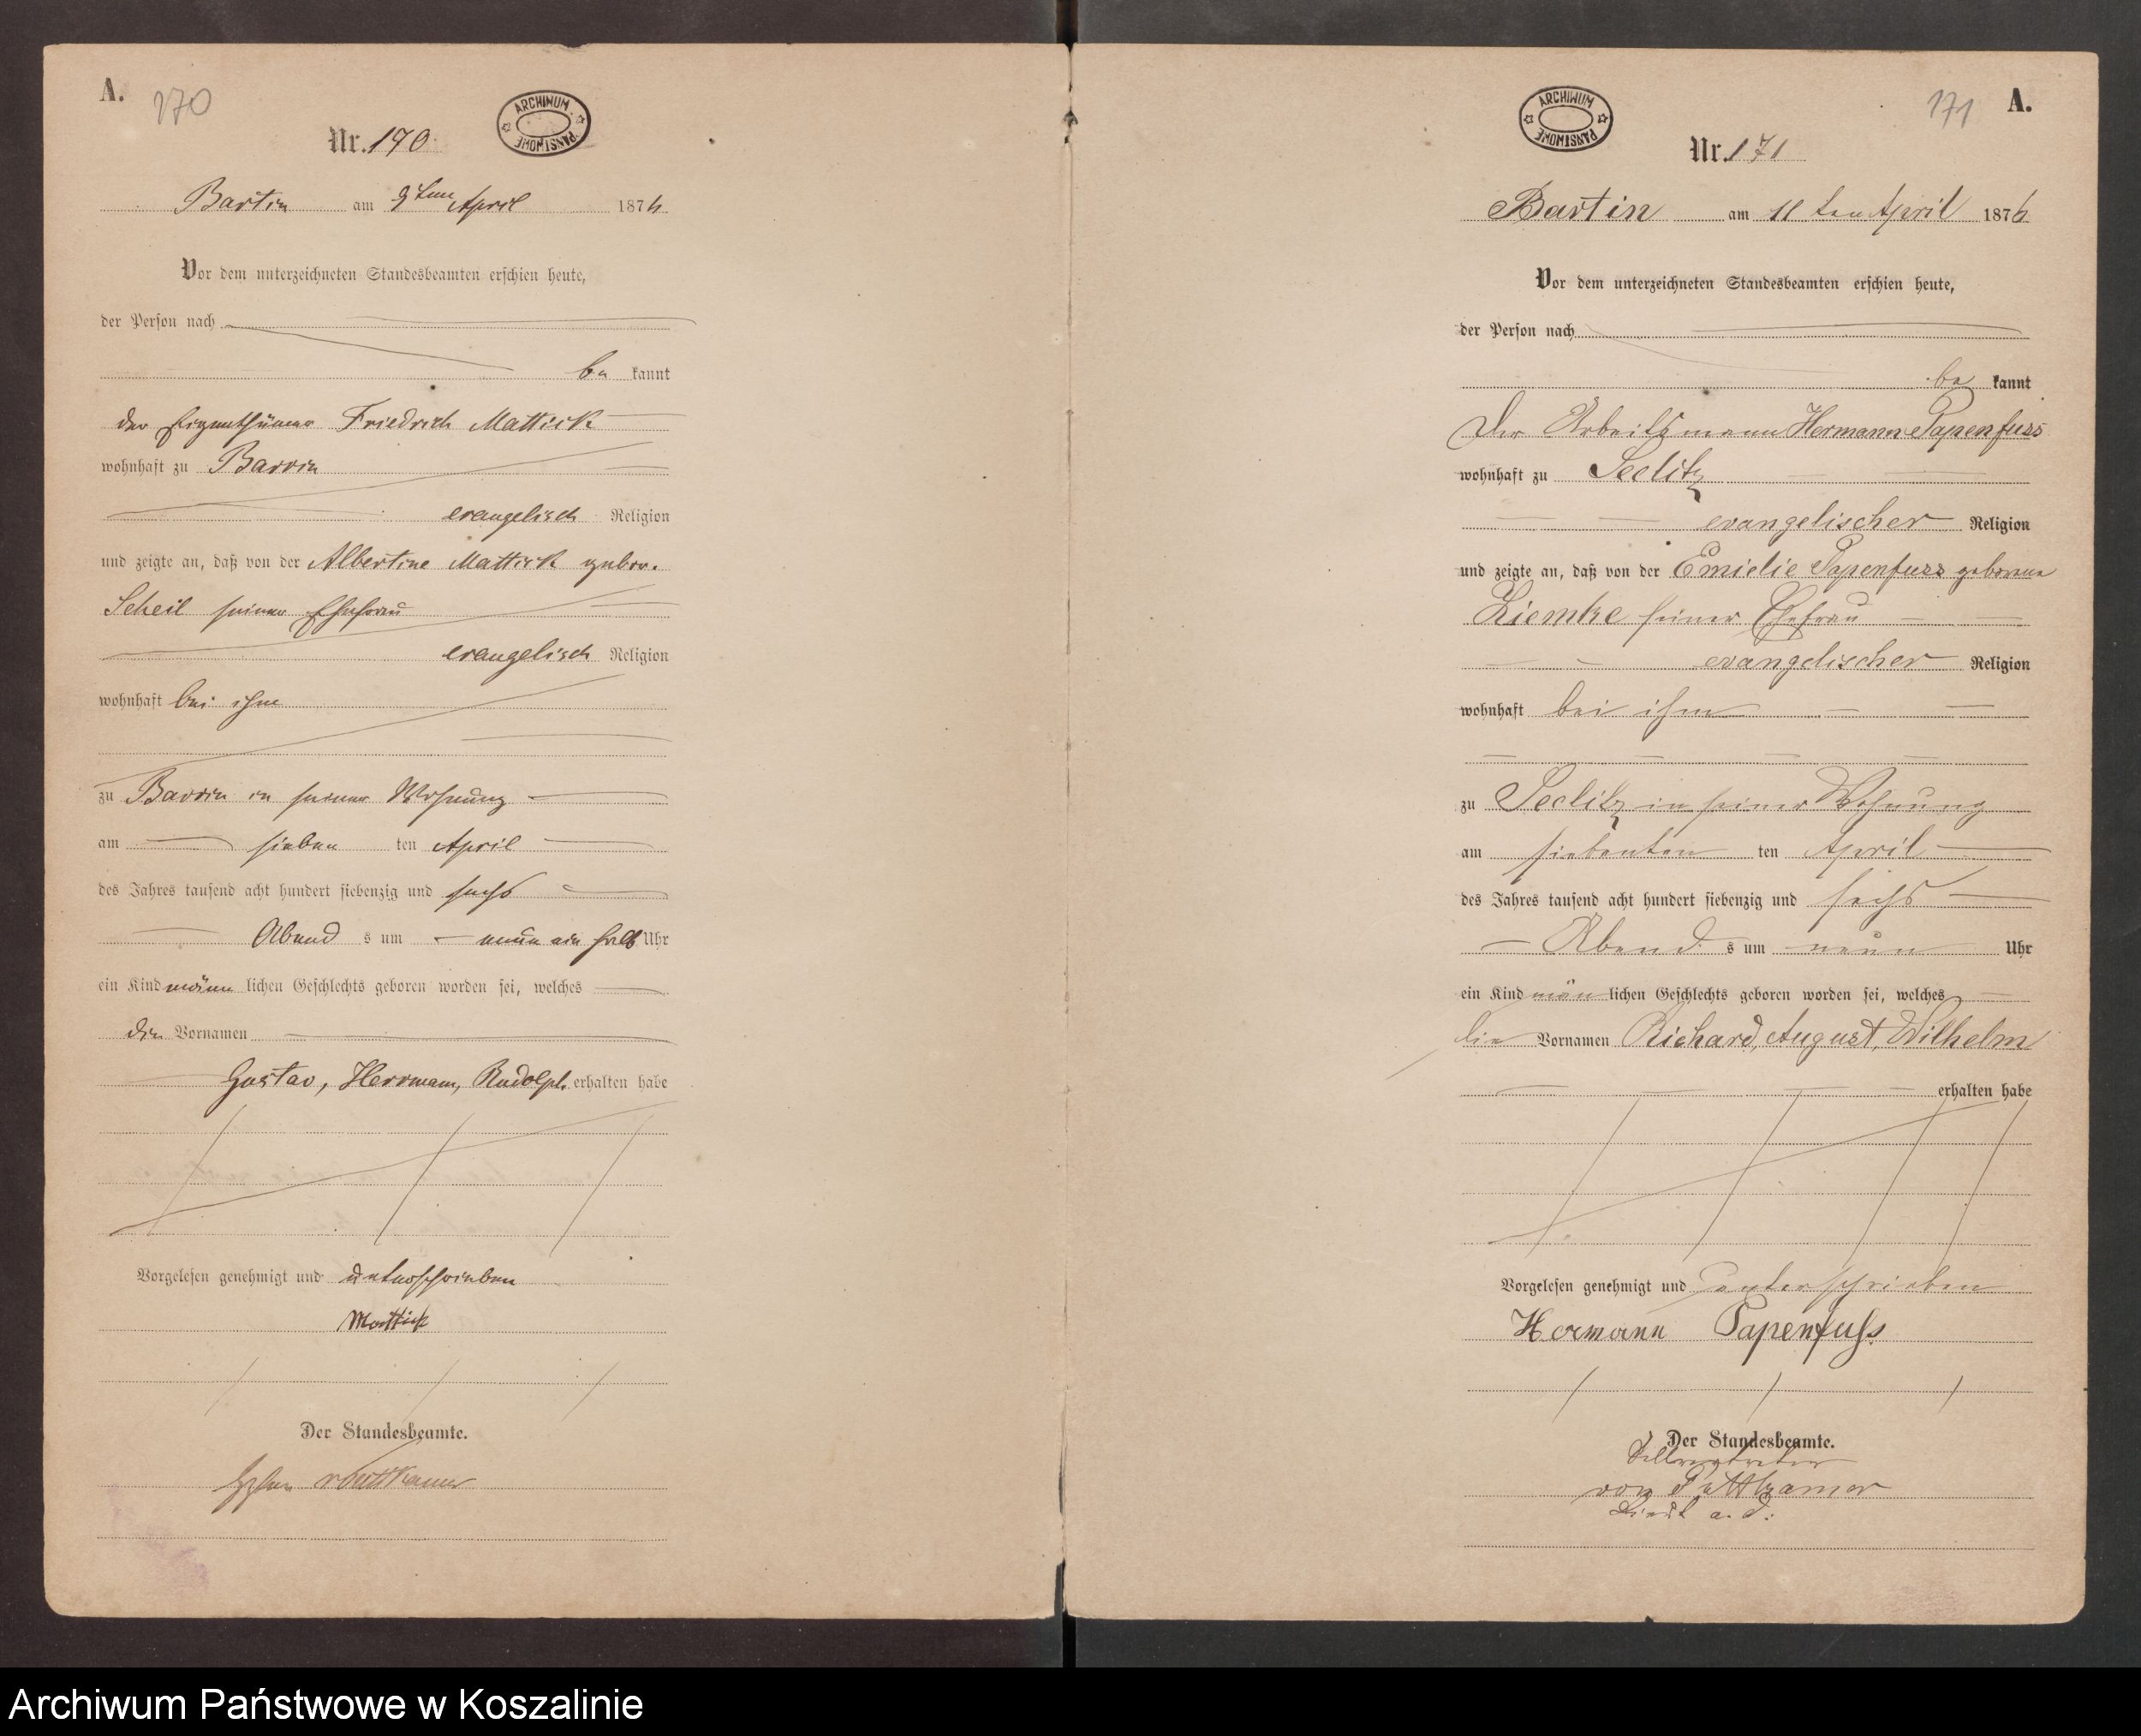 A.
170
Nr. 170.
ARCHIWUM PAŃSTWOWE
Bartin am 9ten April 1876
Vor dem unterzeichneten Standesbeamten erschien heute,
der Person nach
be kannt
der Eigenthümer Friedrich Mattick
wohnhaft zu Barvin
evangelisch Religion
und zeigte an, daß von der Albertine Mattick gebor.
Scheil seiner Ehefrau
evangelisch Religion
wohnhaft bei ihm
zu Barvin in seiner Wohnung
am sieben ten April
des Jahres tausend acht hundert siebenzig und sechs
Abend s um neun ein halb Uhr
ein Kind männ lichen Geschlechts geboren worden sei, welches
die Vornamen
Gustav, Herrmann, Rudolph erhalten habe
Vorgelesen genehmigt und unterschrieben
Mattick
Der Standesbeamte.
v Puttkamer
171 A.
ARCHIWUM PAŃSTWOWE
Nr. 171
Bartin am 11 ten April 1876
Vor dem unterzeichneten Standesbeamten erschien heute,
der Person nach
be kannt
Der Arbeitsmann Hermann Papenfuss
wohnhaft zu Seelitz
evangelischer Religion
und zeigte an, daß von der Emielie Papenfuss geborene
Ziemke seiner Ehefrau
evangelischer Religion
wohnhaft bei ihm
zu Seelitz in seiner Wohnung
am siebenten ten April
des Jahres tausend acht hundert siebenzig und sechs
Abend s um neun Uhr
ein Kind män lichen Geschlechts geboren worden sei, welches
die Vornamen Richard, August, Wilhelm
erhalten habe
Vorgelesen genehmigt und unterschrieben
Hermann Papenfuß
Der Standesbeamte.
Stellvertreter
von Puttkamer
a. d.
Archiwum Państwowe w Koszalinie